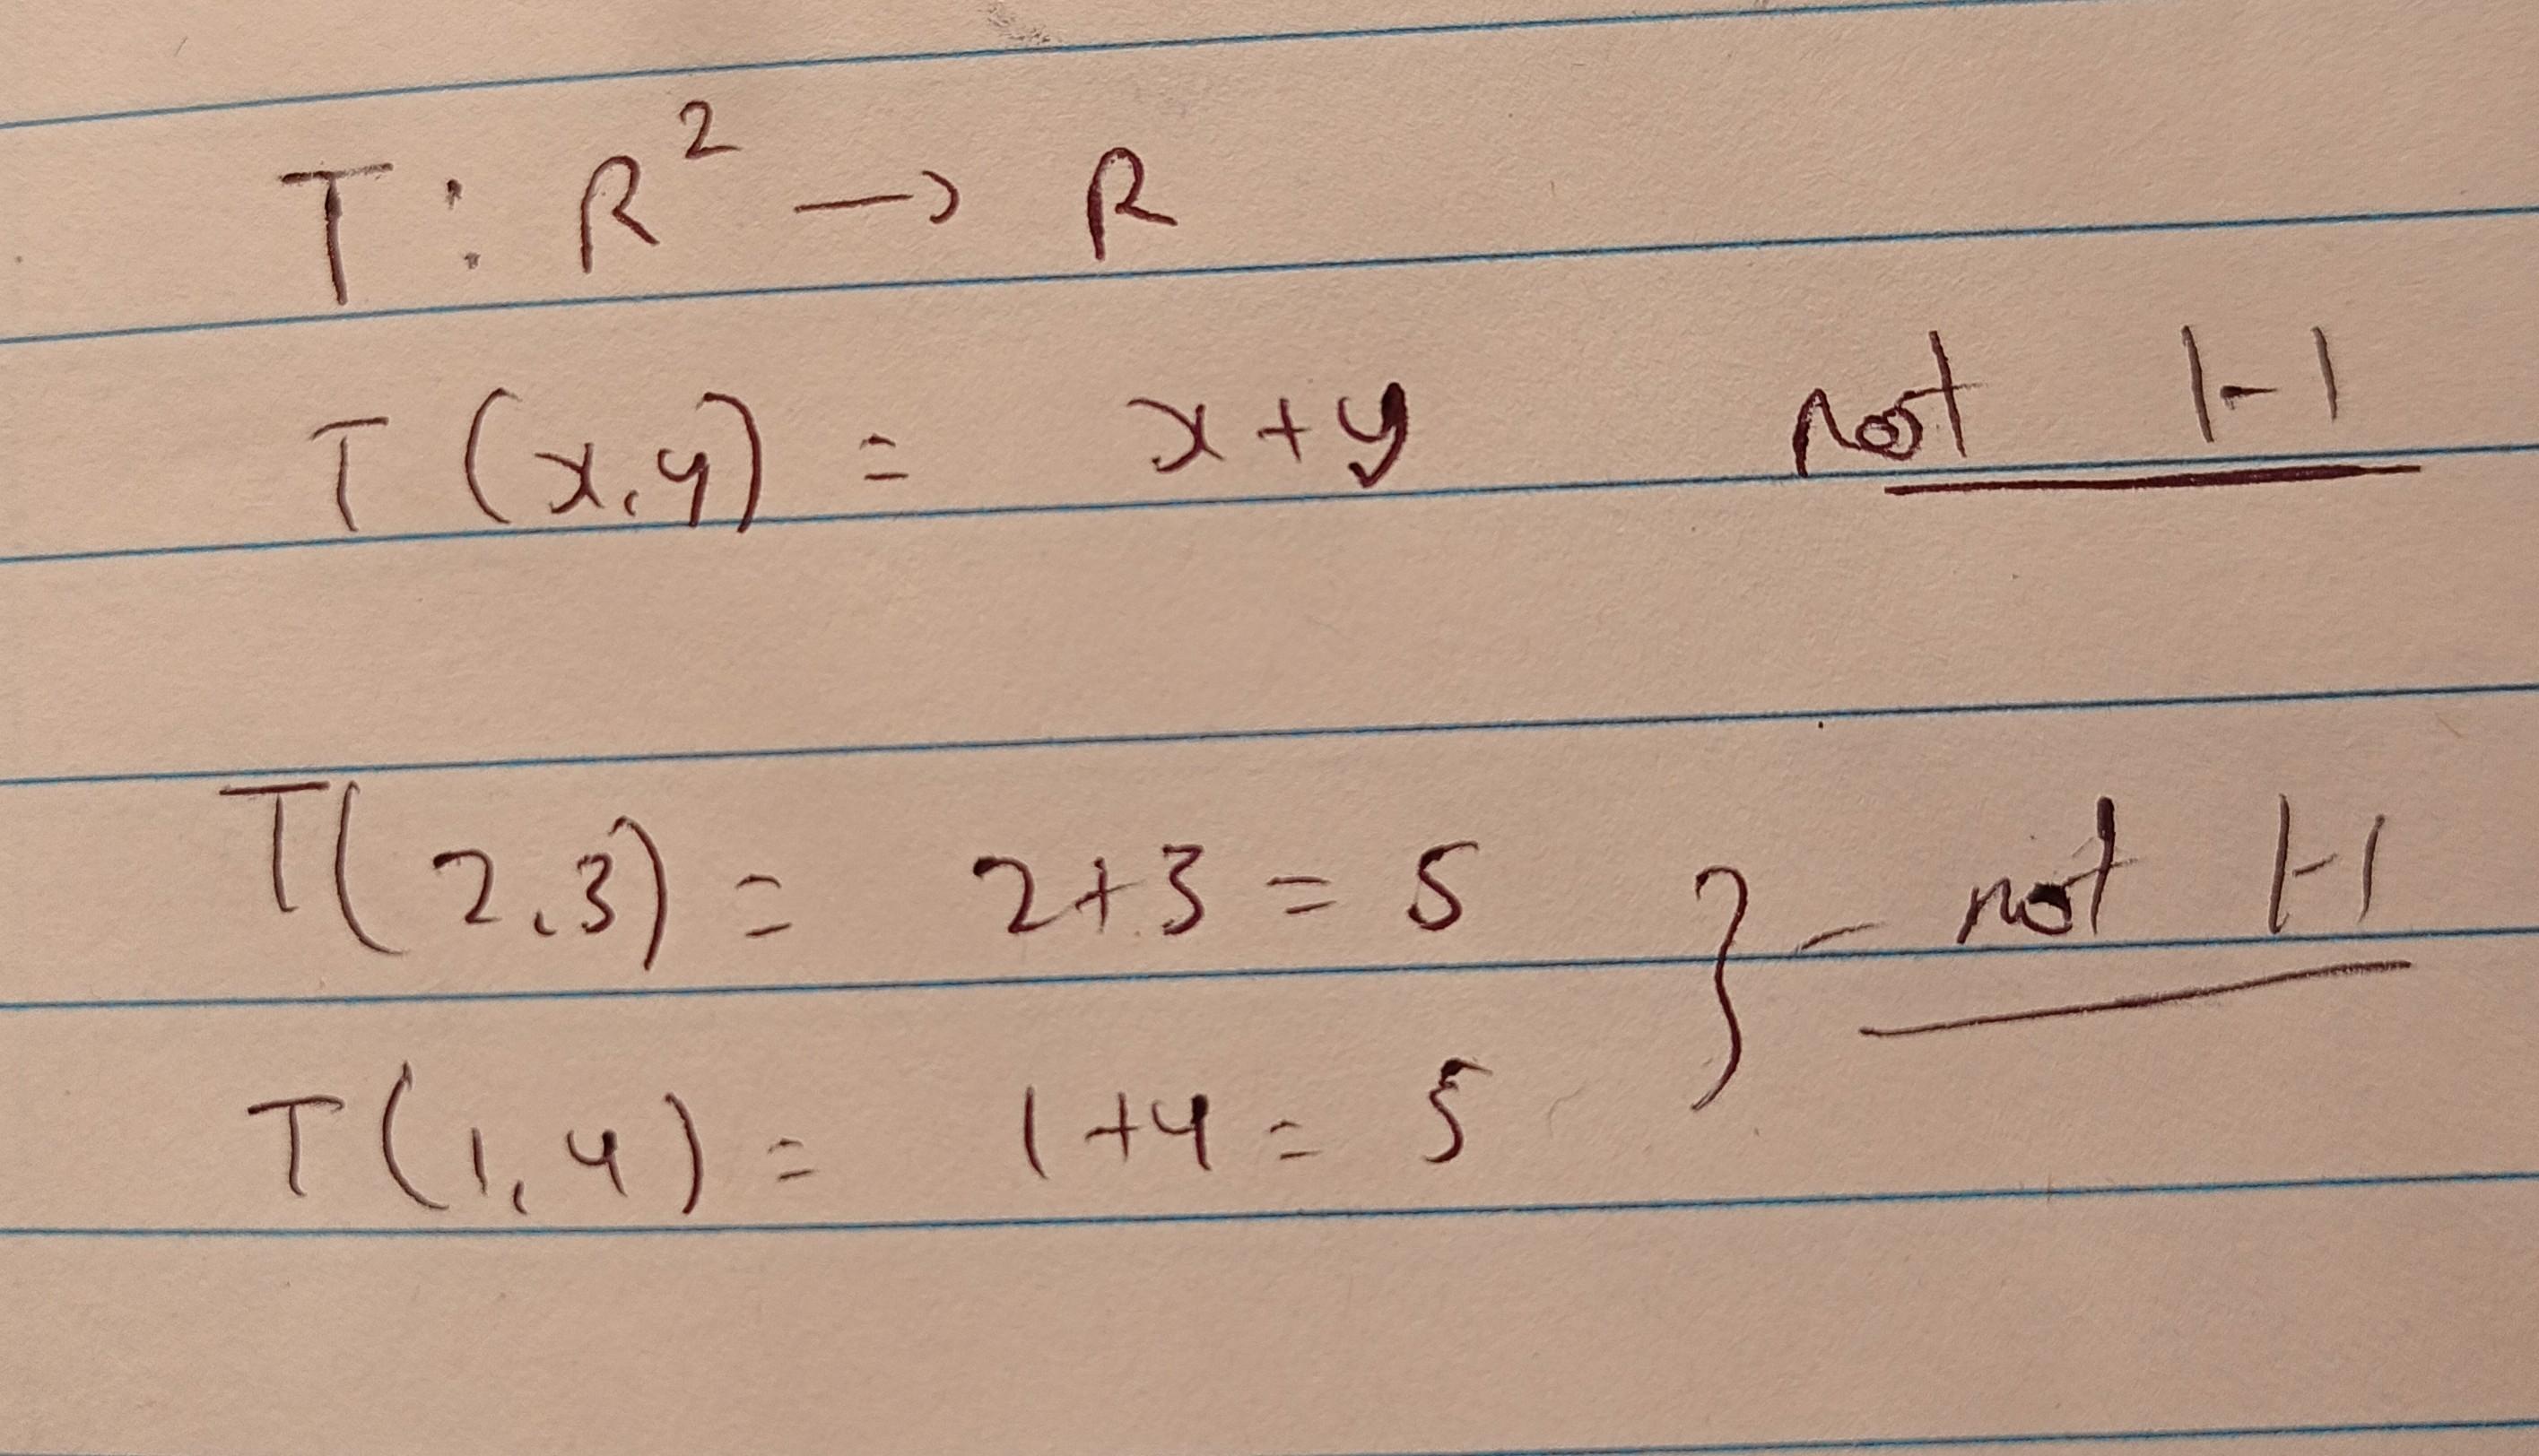 T : R² → R
T (x, y) = x + y not 1-1
T(2,3) = 2+3 = 5 } - not 1-1
T(1,4) = 1+4 = 5